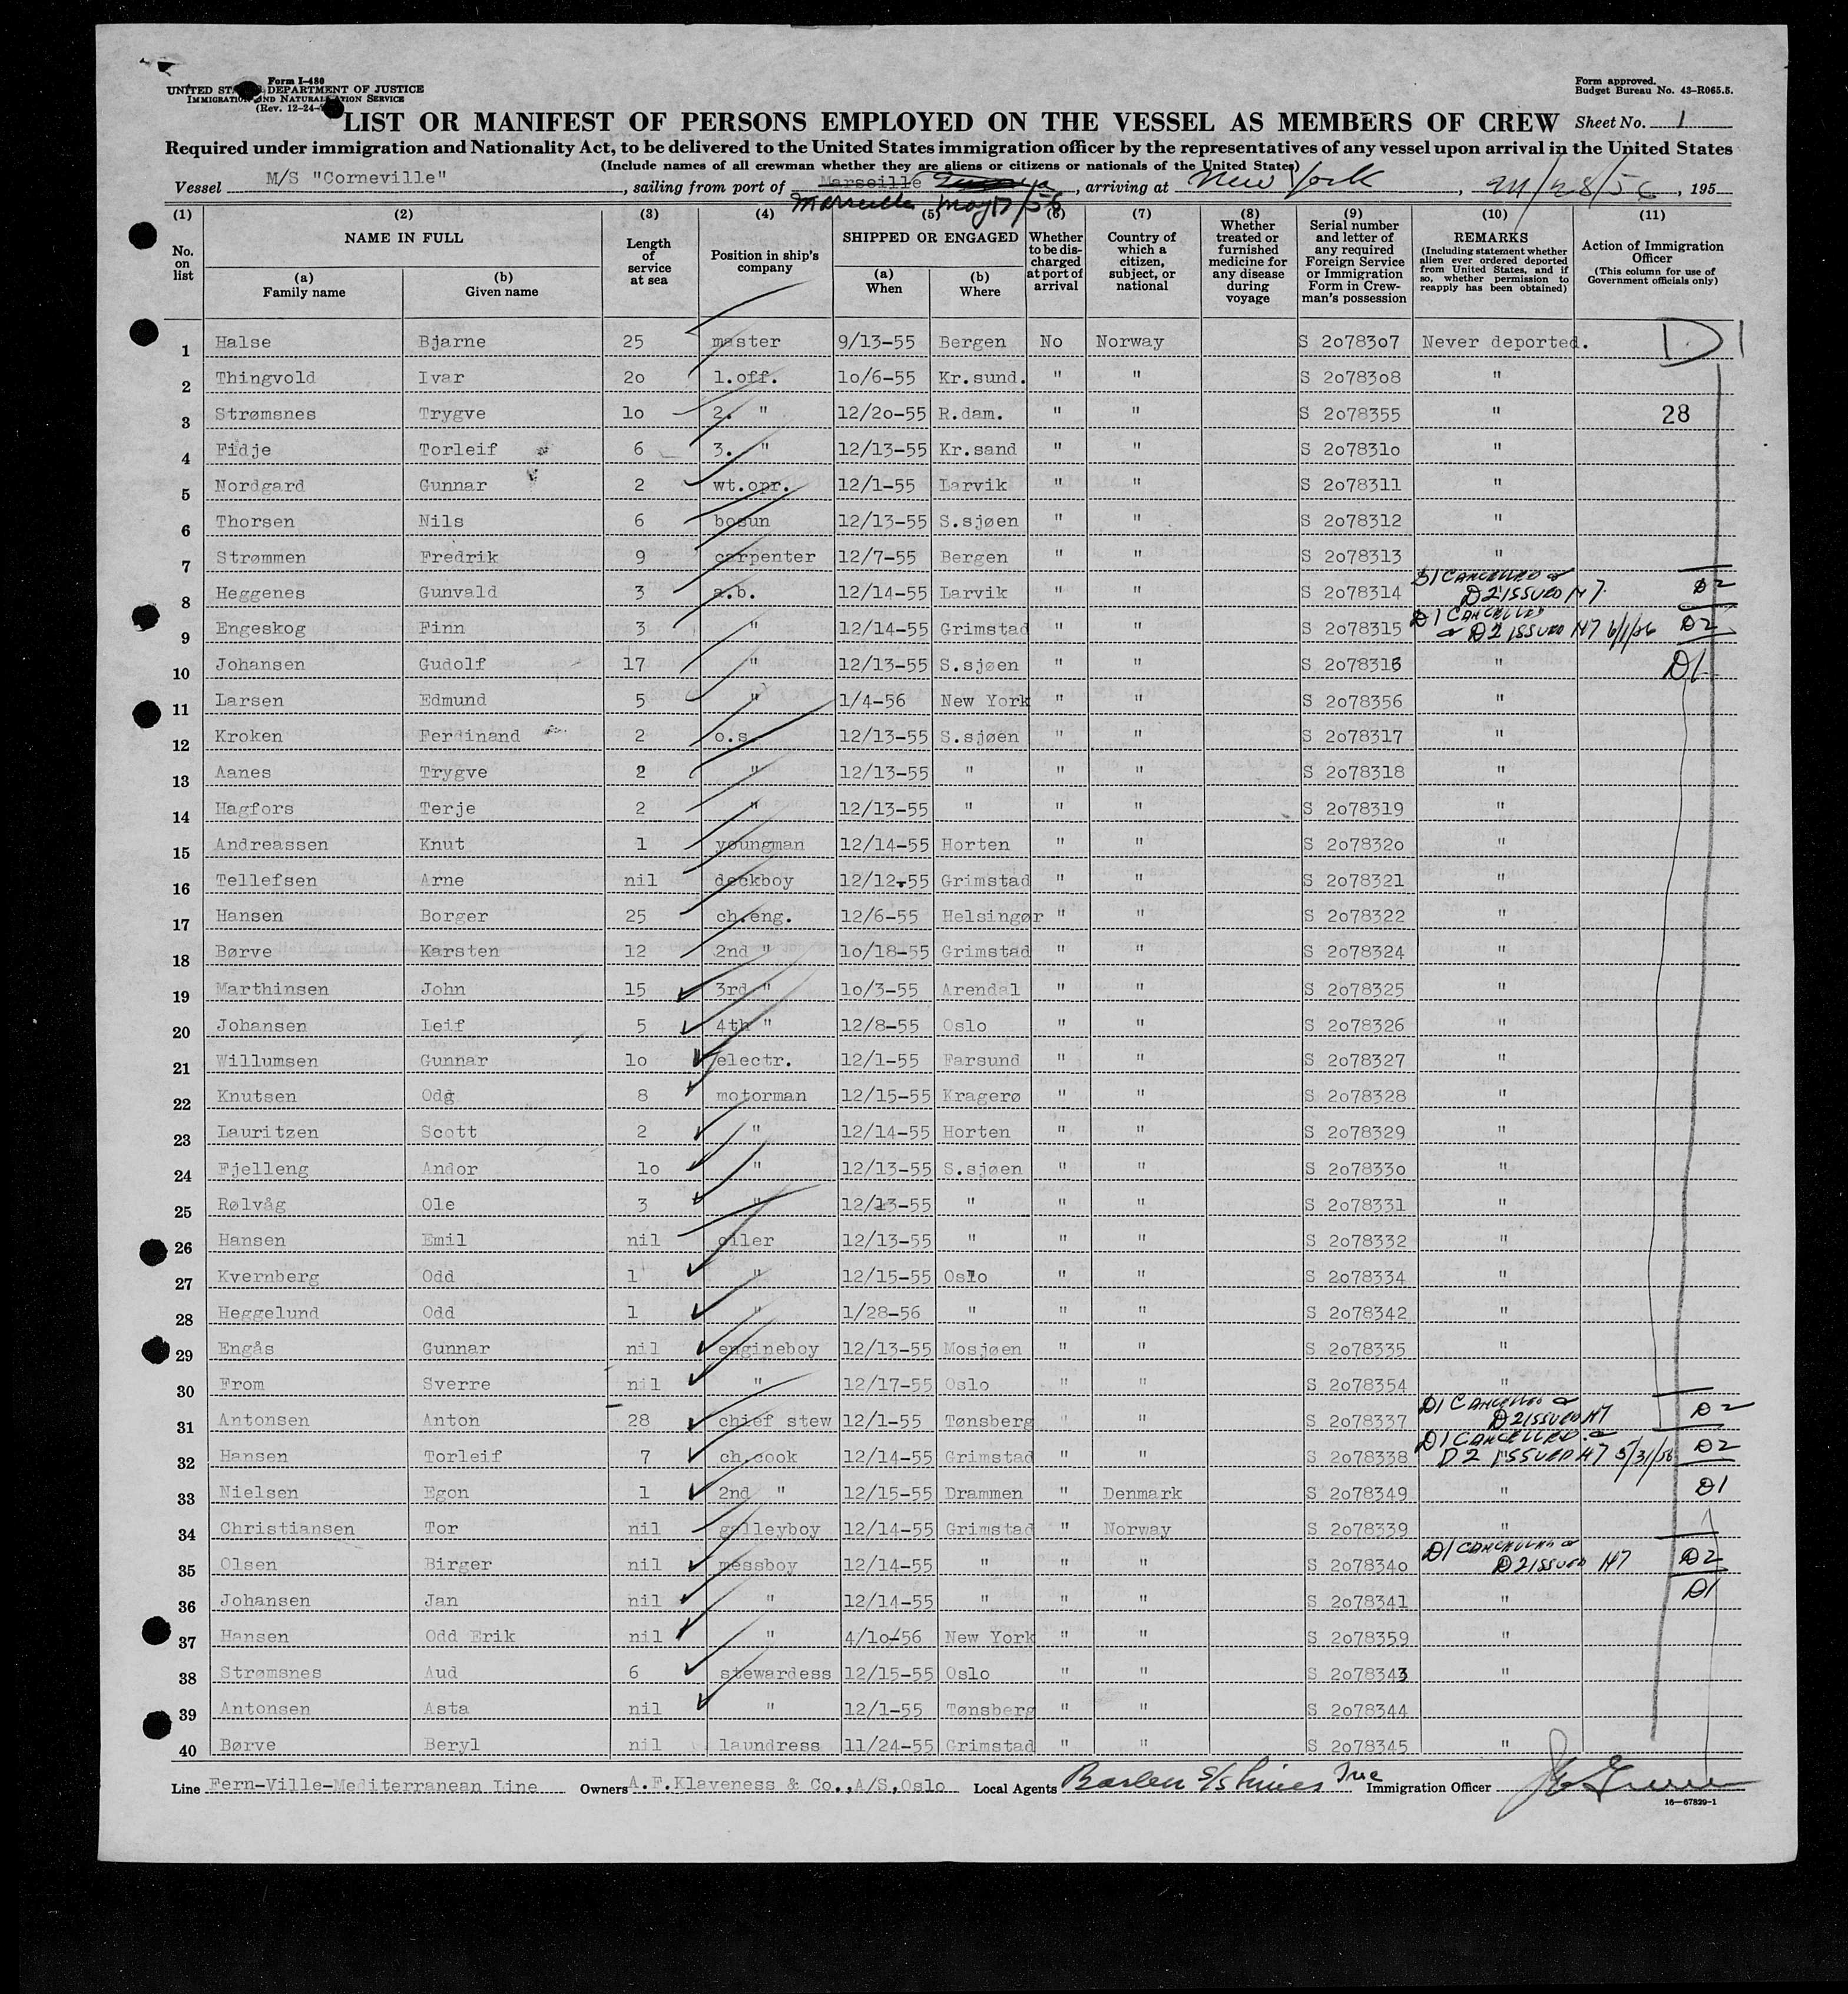 Form I-480
UNITED ST DEPARTMENT OF JUSTICE
IMMIGRATION AND NATURALIZATION SERVICE
(Rev. 12-24-
Form approved.
Budget Bureau No. 43-R065.5.
LIST OR MANIFEST OF PERSONS EMPLOYED ON THE VESSEL AS MEMBERS OF CREW Sheet No. 1
Required under immigration and Nationality Act, to be delivered to the United States immigration officer by the representatives of any vessel upon arrival in the United States
(Include names of all crewman whether they are aliens or citizens or nationals of the United States)
Vessel M/S "Corneville", sailing from port of Marseille, arriving at New York, /28/56, 195
Marseille May 17/56
(1) (2) (3) (4) (5) (6) (7) (8) (9) (10) (11)
No. on list
NAME IN FULL
(a) Family name
(b) Given name
Length of service at sea
Position in ship's company
SHIPPED OR ENGAGED
(a) When
(b) Where
Whether to be discharged at port of arrival
Country of which a citizen, subject, or national
Whether treated or furnished medicine for any disease during voyage
Serial number and letter of any required Foreign Service or Immigration Form in Crewman's possession
REMARKS
(Including statement whether alien ever ordered deported from United States, and if so, whether permission to reapply has been obtained)
Action of Immigration Officer
(This column for use of Government officials only)
1 Halse Bjarne 25 master 9/13-55 Bergen No Norway S 2078307 Never deported. D1
2 Thingvold Ivar 2o 1.off. 1o/6-55 Kr.sund. " " S 2o783o8 "
3 Strømsnes Trygve 1o 2. " 12/2o-55 R.dam. " " S 2o78355 " 28
4 Fidje Torleif 6 3. " 12/13-55 Kr.sand " " S 2o7831o "
5 Nordgard Gunnar 2 wt.opr. 12/1-55 Larvik " " S 2o78311 "
6 Thorsen Nils 6 bosun 12/13-55 S.sjøen " " S 2o78312 "
7 Strømmen Fredrik 9 carpenter 12/7-55 Bergen " " S 2o78313 "
8 Heggenes Gunvald 3 a.b. 12/14-55 Larvik " " S 2o78314 D1 CANCELLED & D2 ISSUED H7. D2
9 Engeskog Finn 3 " 12/14-55 Grimstad " " S 2o78315 D1 CANCELLED & D2 ISSUED H7 6/1/56 D2
10 Johansen Gudolf 17 " 12/13-55 S.sjøen " " S 2o78316 " D1
11 Larsen Edmund 5 " 1/4-56 New York " " S 2o78356 "
12 Kroken Ferdinand 2 o.s. 12/13-55 S.sjøen " " S 2o78317 "
13 Aanes Trygve 2 " 12/13-55 " " " S 2o78318 "
14 Hagfors Terje 2 " 12/13-55 " " " S 2o78319 "
15 Andreassen Knut 1 youngman 12/14-55 Horten " " S 2o7832o "
16 Tellefsen Arne nil deckboy 12/12-55 Grimstad " " S 2o78321 "
17 Hansen Borger 25 ch.eng. 12/6-55 Helsingør " " S 2o78322 "
18 Børve Karsten 12 2nd " 1o/18-55 Grimstad " " S 2o78324 "
19 Marthinsen John 15 3rd " 1o/3-55 Arendal " " S 2o78325 "
20 Johansen Leif 5 4th " 12/8-55 Oslo " " S 2o78326 "
21 Willumsen Gunnar 1o electr. 12/1-55 Farsund " " S 2o78327 "
22 Knutsen Odg 8 motorman 12/15-55 Kragerø " " S 2o78328 "
23 Lauritzen Scott 2 " 12/14-55 Horten " " S 2o78329 "
24 Fjelleng Andor 1o " 12/13-55 S.sjøen " " S 2o7833o "
25 Rølvåg Ole 3 " 12/13-55 " " " S 2o78331 "
26 Hansen Emil nil oiler 12/13-55 " " " S 2o78332 "
27 Kvernberg Odd 1 " 12/15-55 Oslo " " S 2o78334 "
28 Heggelund Odd 1 " 1/28-56 " " " S 2o78342 "
29 Engås Gunnar nil engineboy 12/13-55 Mosjøen " " S 2o78335 "
30 From Sverre nil " 12/17-55 Oslo " " S 2o78354 "
31 Antonsen Anton 28 chief stew 12/1-55 Tønsberg " " S 2o78337 D1 CANCELLED & D2 ISSUED H7 D2
32 Hansen Torleif 7 ch.cook 12/14-55 Grimstad " " S 2o78338 D1 CANCELLED & D2 ISSUED H7 5/31/56 D2
33 Nielsen Egon 1 2nd " 12/15-55 Drammen " Denmark S 2o78349 " D1
34 Christiansen Tor nil galleyboy 12/14-55 Grimstad " Norway S 2o78339 "
35 Olsen Birger nil messboy 12/14-55 " " " S 2o7834o D1 CANCELLED & D2 ISSUED H7 D2
36 Johansen Jan nil " 12/14-55 " " " S 2o78341 " D1
37 Hansen Odd Erik nil " 4/1o-56 New York " " S 2o78359 "
38 Strømsnes Aud 6 stewardess 12/15-55 Oslo " " S 2o78343 "
39 Antonsen Asta nil " 12/1-55 Tønsberg " " S 2o78344 "
40 Børve Beryl nil laundress 11/24-55 Grimstad " " S 2o78345 "
Line Fern-Ville-Mediterranean Line Owners A.F.Klaveness & Co.,A/S,Oslo Local Agents S/S Lines Inc Immigration Officer
16-67829-1